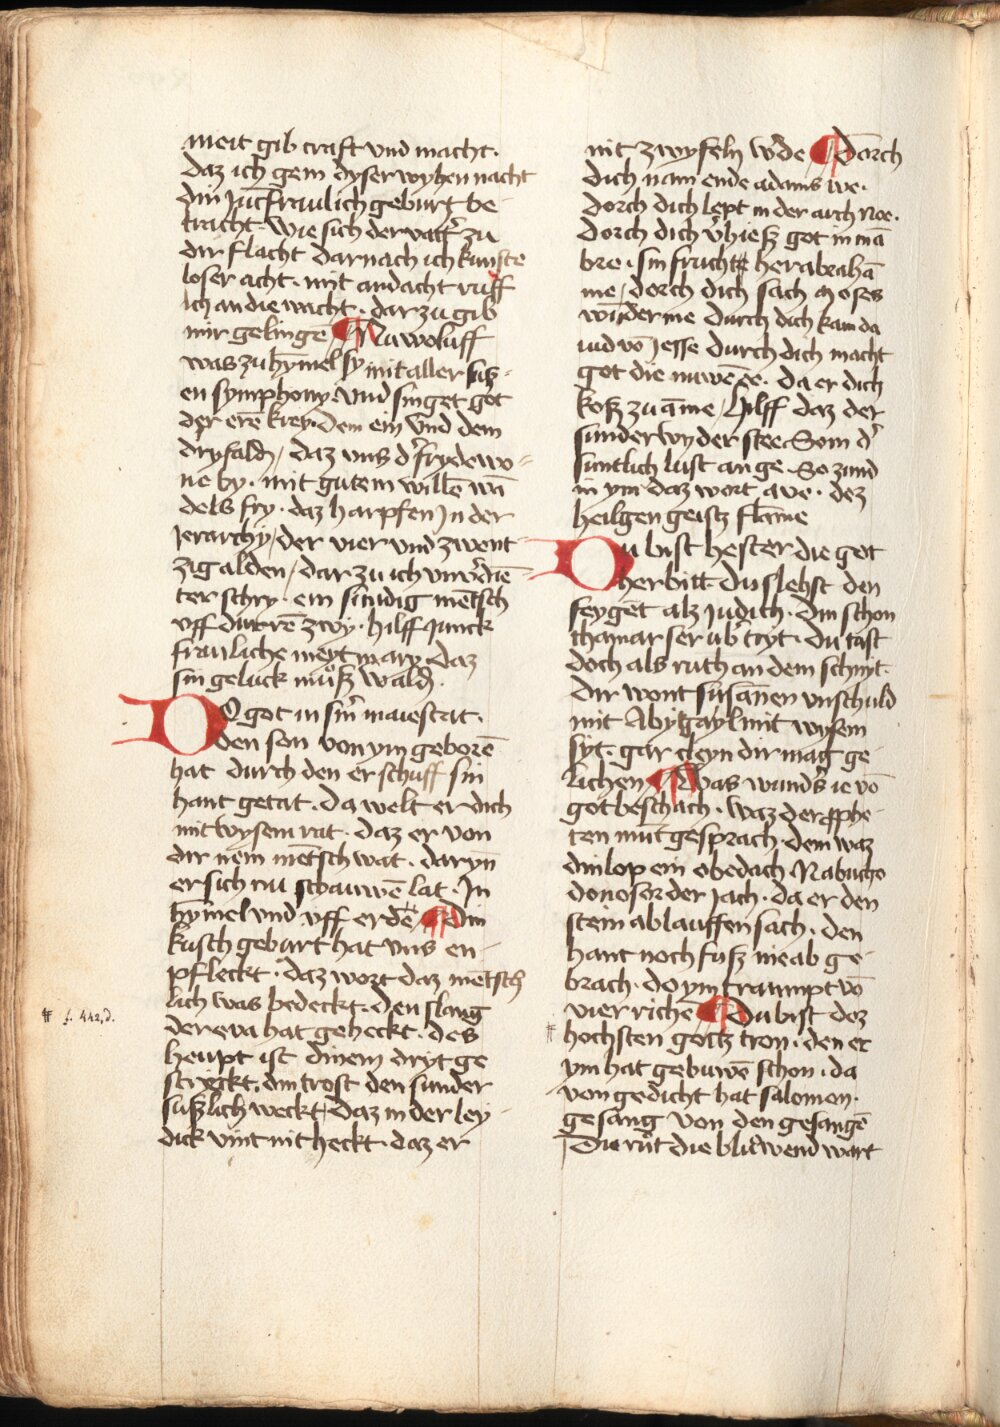 meit gib craft vnd macht.
daz ich gern dyser wyhen nacht
din Jūcfraulich geburt be-
tracht. wie sich der vatt̓ zu
dir flacht darnach ich kunste
loser acht. mit andacht ruff
ich an die wacht. dar zu gib
mir gelingē Nu woluff
was zu hȳmel sy mit aller susz-
en symphony. vnd singet got
der erē krey. Dem ein vnd dem
dryfaldn / daz vns d̓ fryde wo-
ne by. mit gutem willē wā
dels fry. daz harpfen Jn der
Jerarchy / der vier vnd zwent
zig alden / dar zu ich vnv̓diē-
ter schry. ein sundig mētsch
vff durrē zwy. hilff Junck
frauliche meyt mary. daz
sin geluck musz waldn.
DO got in sin̓ maiestat.
den son von ym geborē
hat durch den er schuff sin
hant getat. da welt er dich
mit wysem rat. daz er von
dir nem mētsch wat. daryn
er sich nu schauwē lat. Jn
hȳmel vnd vff erdē Din
kusch geburt hat vns en-
pfleckt. daz wort daz mētsch
lich was bedeckt. den slang
der eva hat geheckt. des
heupt ist dinem dryt ge
streckt. din trost den sunder
suszlich weckt / daz in der ley-
dick vint nit heckt. daz er
# f. 442, d.
nit zwyfeln w̓de Dorch
dich nam ende adams we.
dorch dich lept in der arch Noe.
dorch dich v̓hiesz got in mā
bre. sin frucht her abrahā
me / dorch dich sach moses
wunder me durch dich kam da
uid vō Jesse durch dich macht
got die nuwē ee. da er dich
kosz zu āme / Hilff daz der
sunder wyder stee. Som d̓
suntlich lust an ge. So zund
in ym daz wort ave. dez
heilgen geistz flāme
Du bist hester die got
herbitt du slehst den
feygēt alz Judich. din schon
thamar ser ub̓tryt. du tast
doch als ruth an dem schnyt.
dir wont susānen vnschuld
mit Abygayl mit wysem
syt. gar cleyn dir mag ge-
lichen Was wund̓s ie vō
got beschach. waz der ꝓphe-
ten mut gesprach. dem waz
din lop ein obedach Nabucho
donosor der Jach. da er den
stein ablauffen sach. den
hant noch fusz nie ab ge-
brach. do ym traumpt vō
vier richē Du bist dez
# hochsten gottz tron. den er
ym hat gebuwē schon. da
von gedicht hat salomon.
gesang von den gesangē
Die rut die bluwend wart